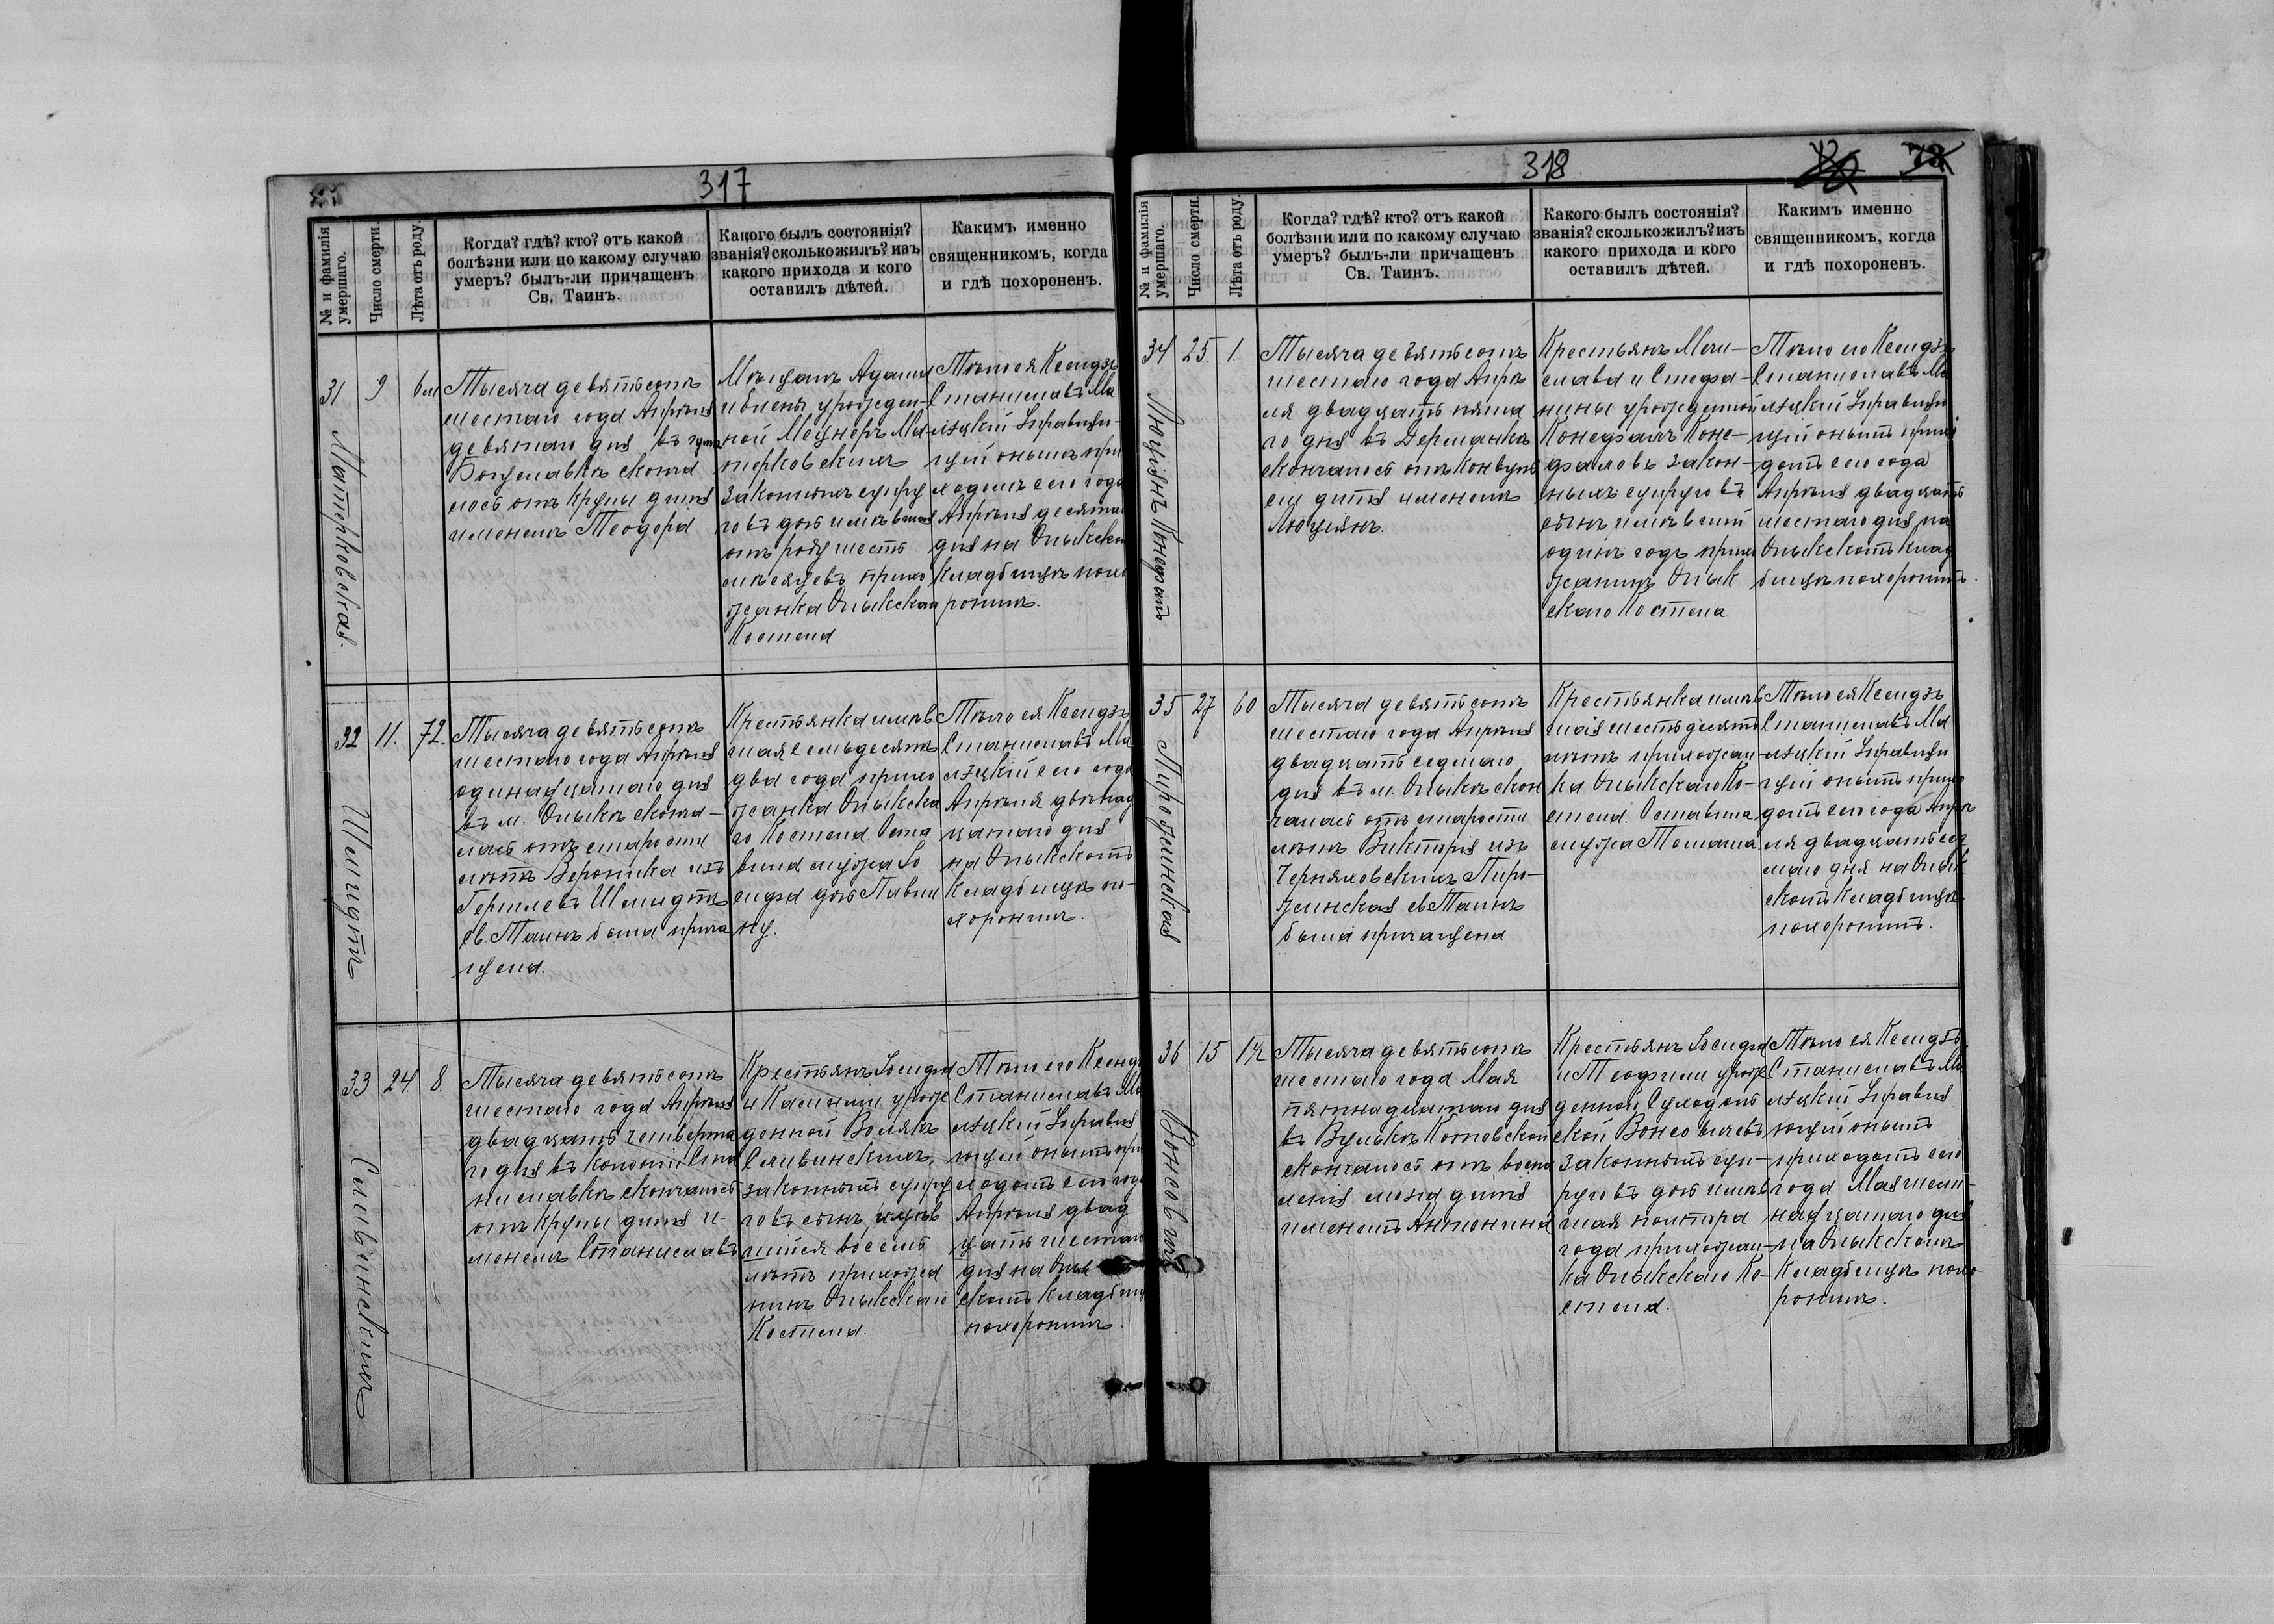 317
№ и фамилія умершаго.
Число смерти.
Лѣта отъ роду.
Когда? гдѣ? кто? отъ какой
болѣзни или по какому случаю
умеръ? былъ-ли причащенъ
Св. Таинъ.
Какого былъ состоянія?
званія? сколько жилъ? изъ
какого прихода и кого
оставилъ дѣтей.
Какимъ именно
священникомъ, когда
и гдѣ похороненъ.
31
Матерковская.
9
6 м
Тысяча девятьсотъ
шестаго года Апрѣля
девятаго дня въ
Богуславкѣ сконча
лось отъ крупы дитя
именемъ Теодора
Мѣщанъ Адама
и Елены урожден-
ной Мецнеръ Ма-
терковскихъ
законныхъ супру
говъ дочь имѣвшая
отъ роду шесть
мѣсяцевъ прихо
жанка Олыкскаго
Костела
Тѣло ея Ксендзъ
Станиславъ Ма
лѣцкій Управляю-
щій онымъ при
ходомъ сего года
Апрѣля десятаго
дня на Олыкском
Кладбищѣ похо
ронилъ.
32
Шмидтъ
11.
72.
Тысяча девятьсотъ
шестаго года Апрѣля
одинадцатаго дня
въ м. Олыкѣ сконча-
лась отъ старости
лѣтъ Вероника изъ
Шмидтъ
св. Таинъ была прича
щена.
Крестьянка имѣв
шая семьдесятъ
два года прихо
жанка Олыкска
го Костела. Оста
вила мужа Іо
сифа дочь Павли
ну.
Тѣло ея Ксендзъ
Станиславъ Ма
лѣцкій сего года
Апрѣля двѣнад
цатаго дня
на Олыкскомъ
Кладбищѣ по-
хоронилъ.
33
Сливинскихъ
24.
8.
Тысяча девятьсотъ
шестаго года Апрѣля
двадцать четверта
го дня въ колоніи Ста
ниславкѣ скончалось
отъ крупы дитя и-
менемъ Станиславъ
Крестьянъ Іосифа
и Камиліи урож
денной Волякъ
Сливинскихъ,
законныхъ супру
говъ сынъ имѣв
шійся восемь
лѣтъ прихожа
нинъ Олыкскаго
Костела.
Тѣло его Ксендзъ
Станиславъ Ма
лѣцкій Управля
ющій онымъ при
ходомъ сего года
Апрѣля двад
цать шестаго
дня на Олык
скомъ Кладбищѣ
похоронилъ.
318
№ и фамилія умершаго.
Число смерти.
Лѣта отъ роду.
Когда? гдѣ? кто? отъ какой
болѣзни или по какому случаю
умеръ? былъ-ли причащенъ
Св. Таинъ.
Какого былъ состоянія?
званія? сколько жилъ? изъ
какого прихода и кого
оставилъ дѣтей.
Какимъ именно
священникомъ, когда
и гдѣ похороненъ.
34
Люціянъ Конефалъ
25.
1.
Тысяча девятьсотъ
шестаго года Апрѣ
ля двадцать пята
го дня въ Дерманкѣ
скончалось отъ конвуль
сіи дитя именемъ
Люціянъ.
Крестьянъ Мечи-
слава и Стефа-
ніны урожденной
Конефалъ Коне-
фаловъ закон-
ныхъ супруговъ
сынъ имѣвшій
одинъ годъ прихо
жанинъ Олык
скаго Костела
Тѣло его Ксендзъ
Станиславъ Ма
лѣцкій Управляю
щій онымъ прихо
домъ сего года
Апрѣля двадцать
шестаго дня на
Олыкскомъ Клад
бищѣ похоронилъ.
35
Пирожинская
27
60
Тысяча девятьсотъ
шестаго года Апрѣля
двадцать седьмаго
дня въ м. Олыкѣ скон
чалась отъ старости
лѣтъ Викторія изъ
Черняховскихъ Пиро-
жинская св. Таинъ
была причащена
Крестьянка имѣв
шая шестьдесятъ
лѣтъ прихожан-
ка Олыкскаго Ко-
стела. Оставила
мужа Томаша.
Тѣло ея Ксендзъ
Станиславъ Ма
лѣцкій Управляю
щій онымъ прихо
домъ сего года Апрѣ
ля двадцать сед
маго дня на Олык
скомъ Кладбищѣ
похоронилъ.
36
Вонсовичъ
15
1½
Тысяча девятьсотъ
шестаго года Мая
пятнадцатаго дня
въ Вулькѣ Котовской
скончалось отъ воспа
ленія мозга дитя
именемъ Антонина
Крестьянъ Іосифа
и Теофили урож
денной Суходоль
ской Вонсовичевъ
законныхъ суп-
руговъ дочь имѣв
шая полтора
года прихожан-
ка Олыкскаго Ко-
стела.
Тѣло ея Ксендзъ
Станиславъ Ма
лѣцкій Управля
ющій онымъ
приходомъ сего
года Мая шест-
надцатаго дня
на Олыкскомъ
Кладбищѣ похо
ронилъ.